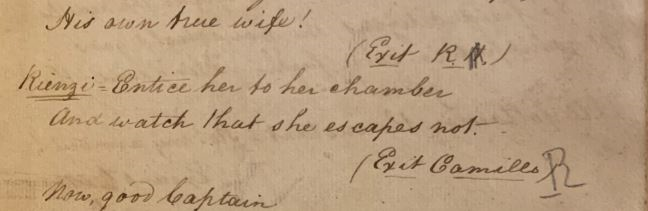 His own true wife!
(Exit R.)
Rienzi = Entice her to her chamber
And watch that she escapes not.
(Exit Camillo R
Now, good Captain